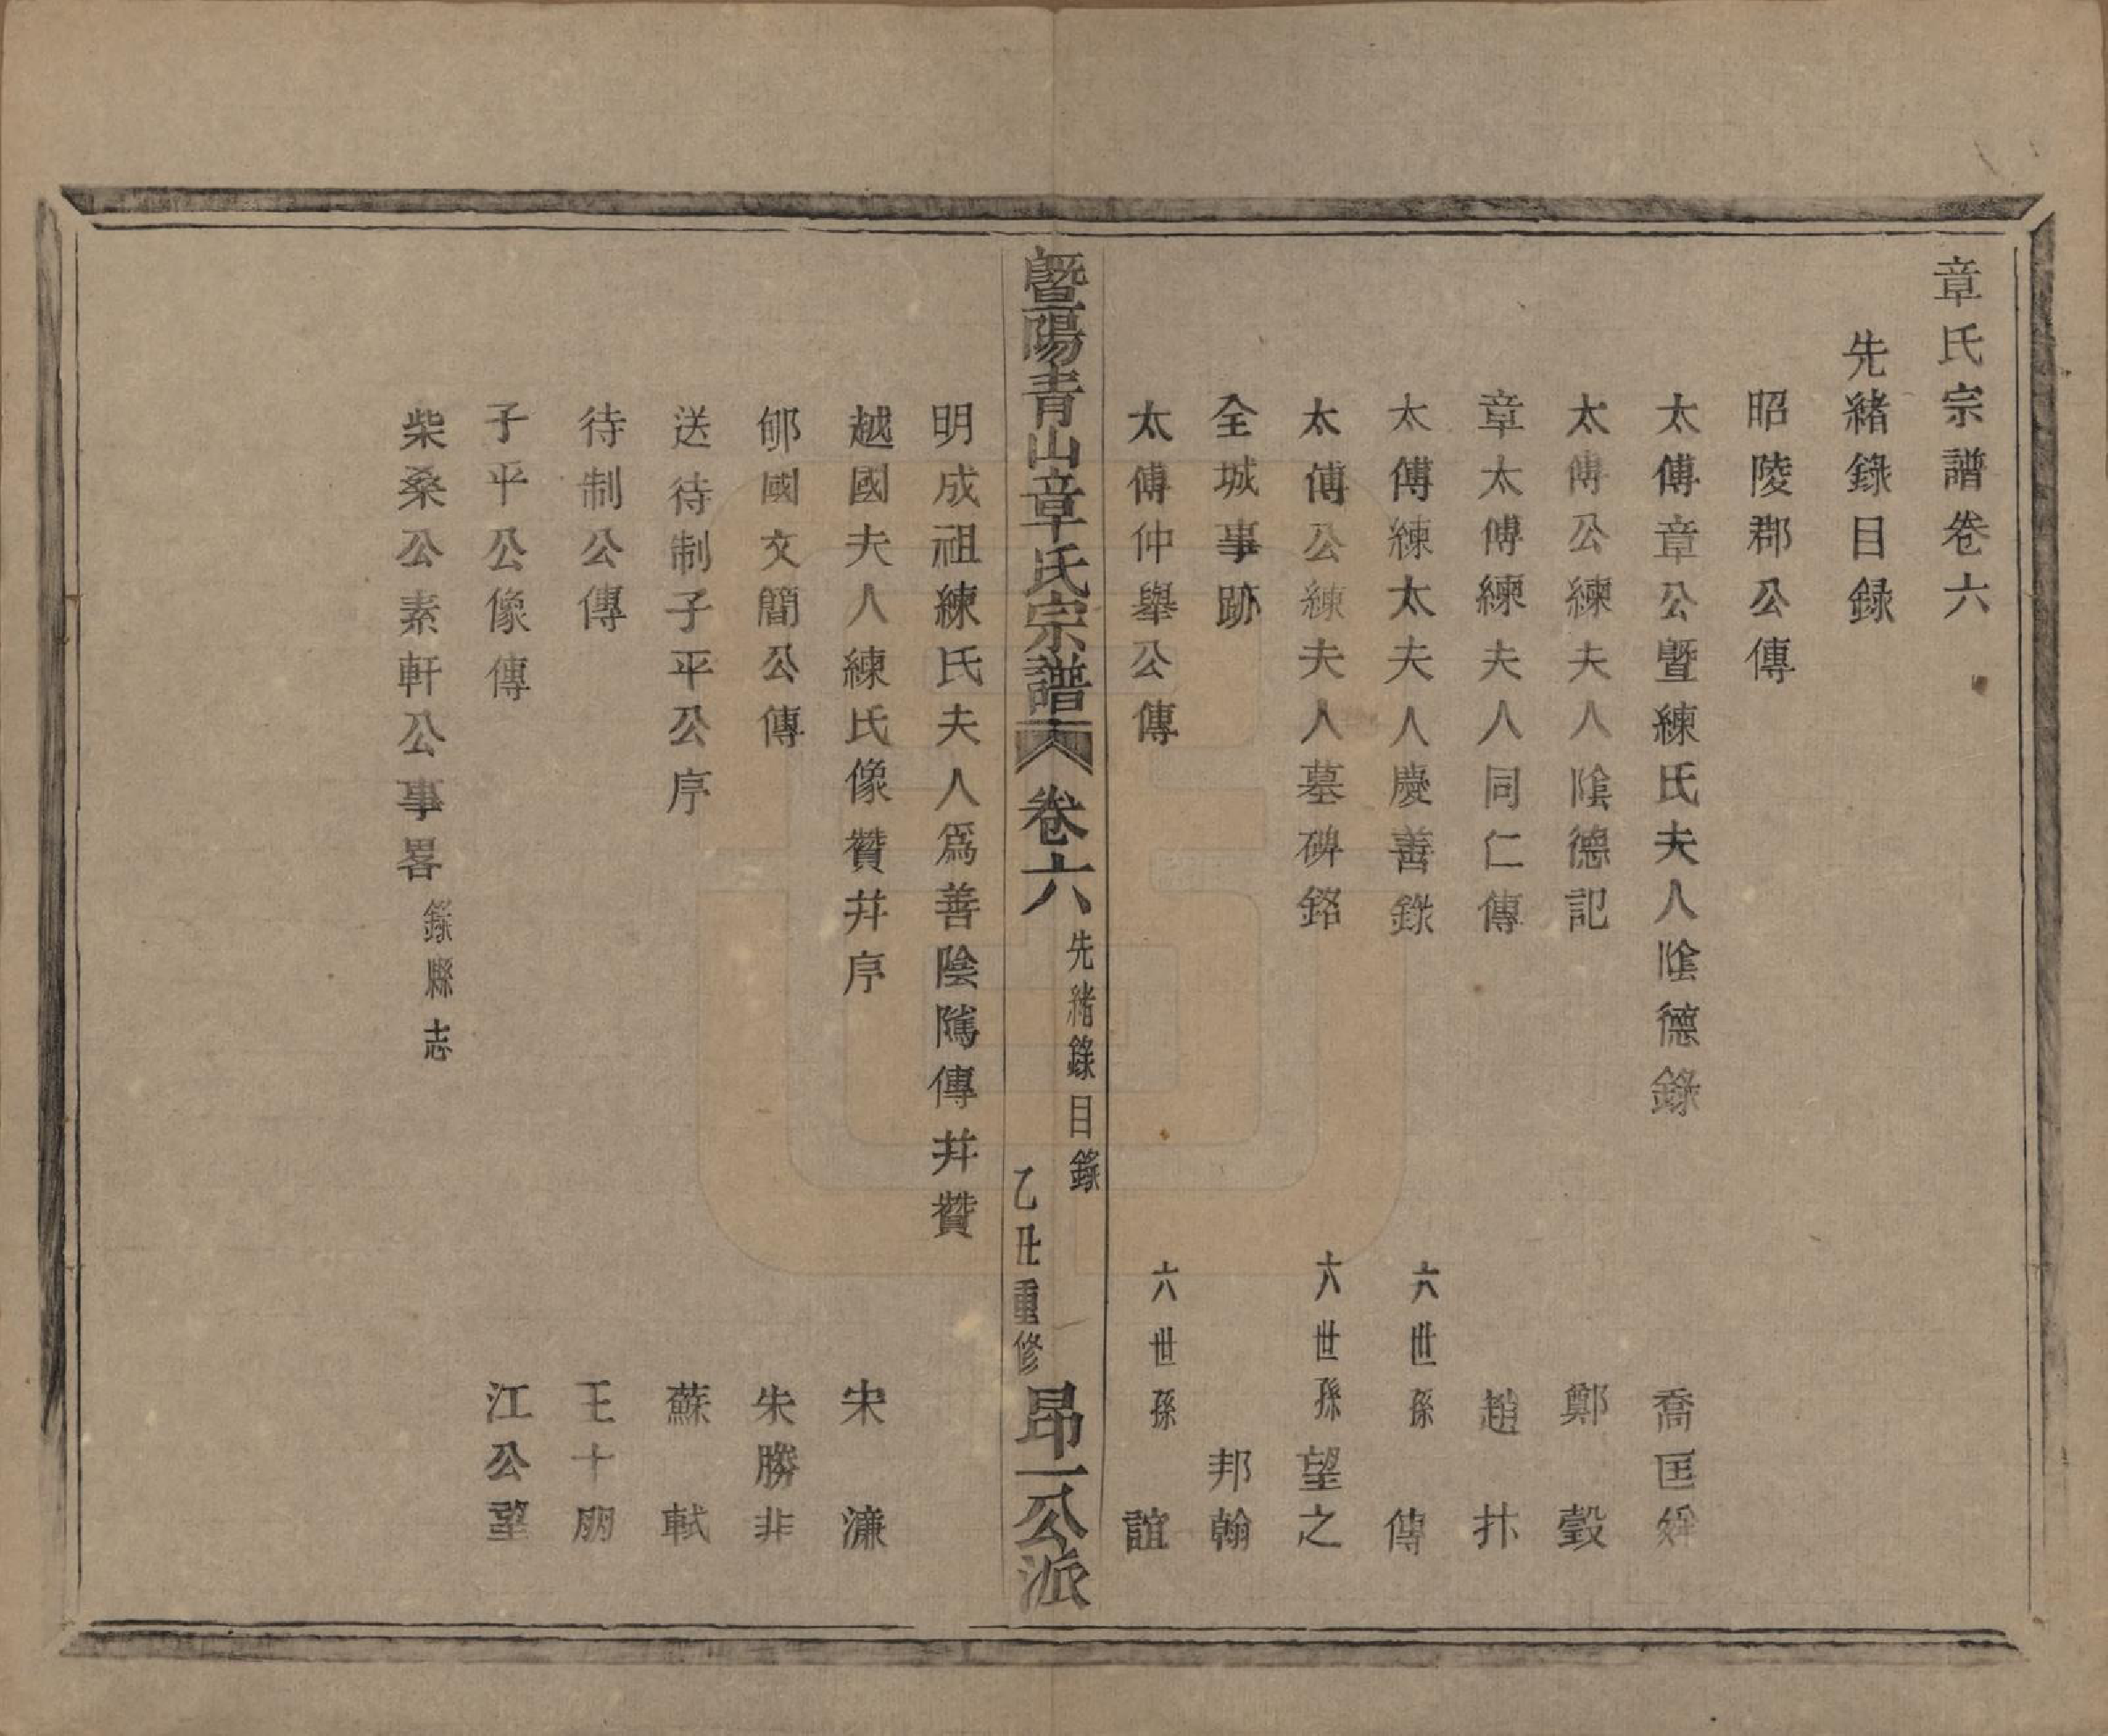 章氏宗譜卷六
先緒錄目録
昭陵郡公傳
太傅章公暨練氏夫人陰德錄 喬匡舜
太傅公練夫人陰德記 鄭瑴
章太傅練夫人同仁傳 趙抃
太傅練太夫人慶善錄 六世孫傳
太傅公練夫人墓碑銘 六世孫望之
全城事跡 邦翰
太傅仲舉公傳 六世孫誼
暨陽青山章氏宗譜 卷六 先緒錄目錄 乙丑重修 昂一公派
明成祖練氏夫人爲善陰隲傳并贊
越國夫人練氏像贊并序 宋濂
郇國文簡公傳 朱勝非
送待制子平公序 蘇軾
待制公傳 王十朋
子平公像傳 江公望
柴桑公素軒公事畧 錄縣志